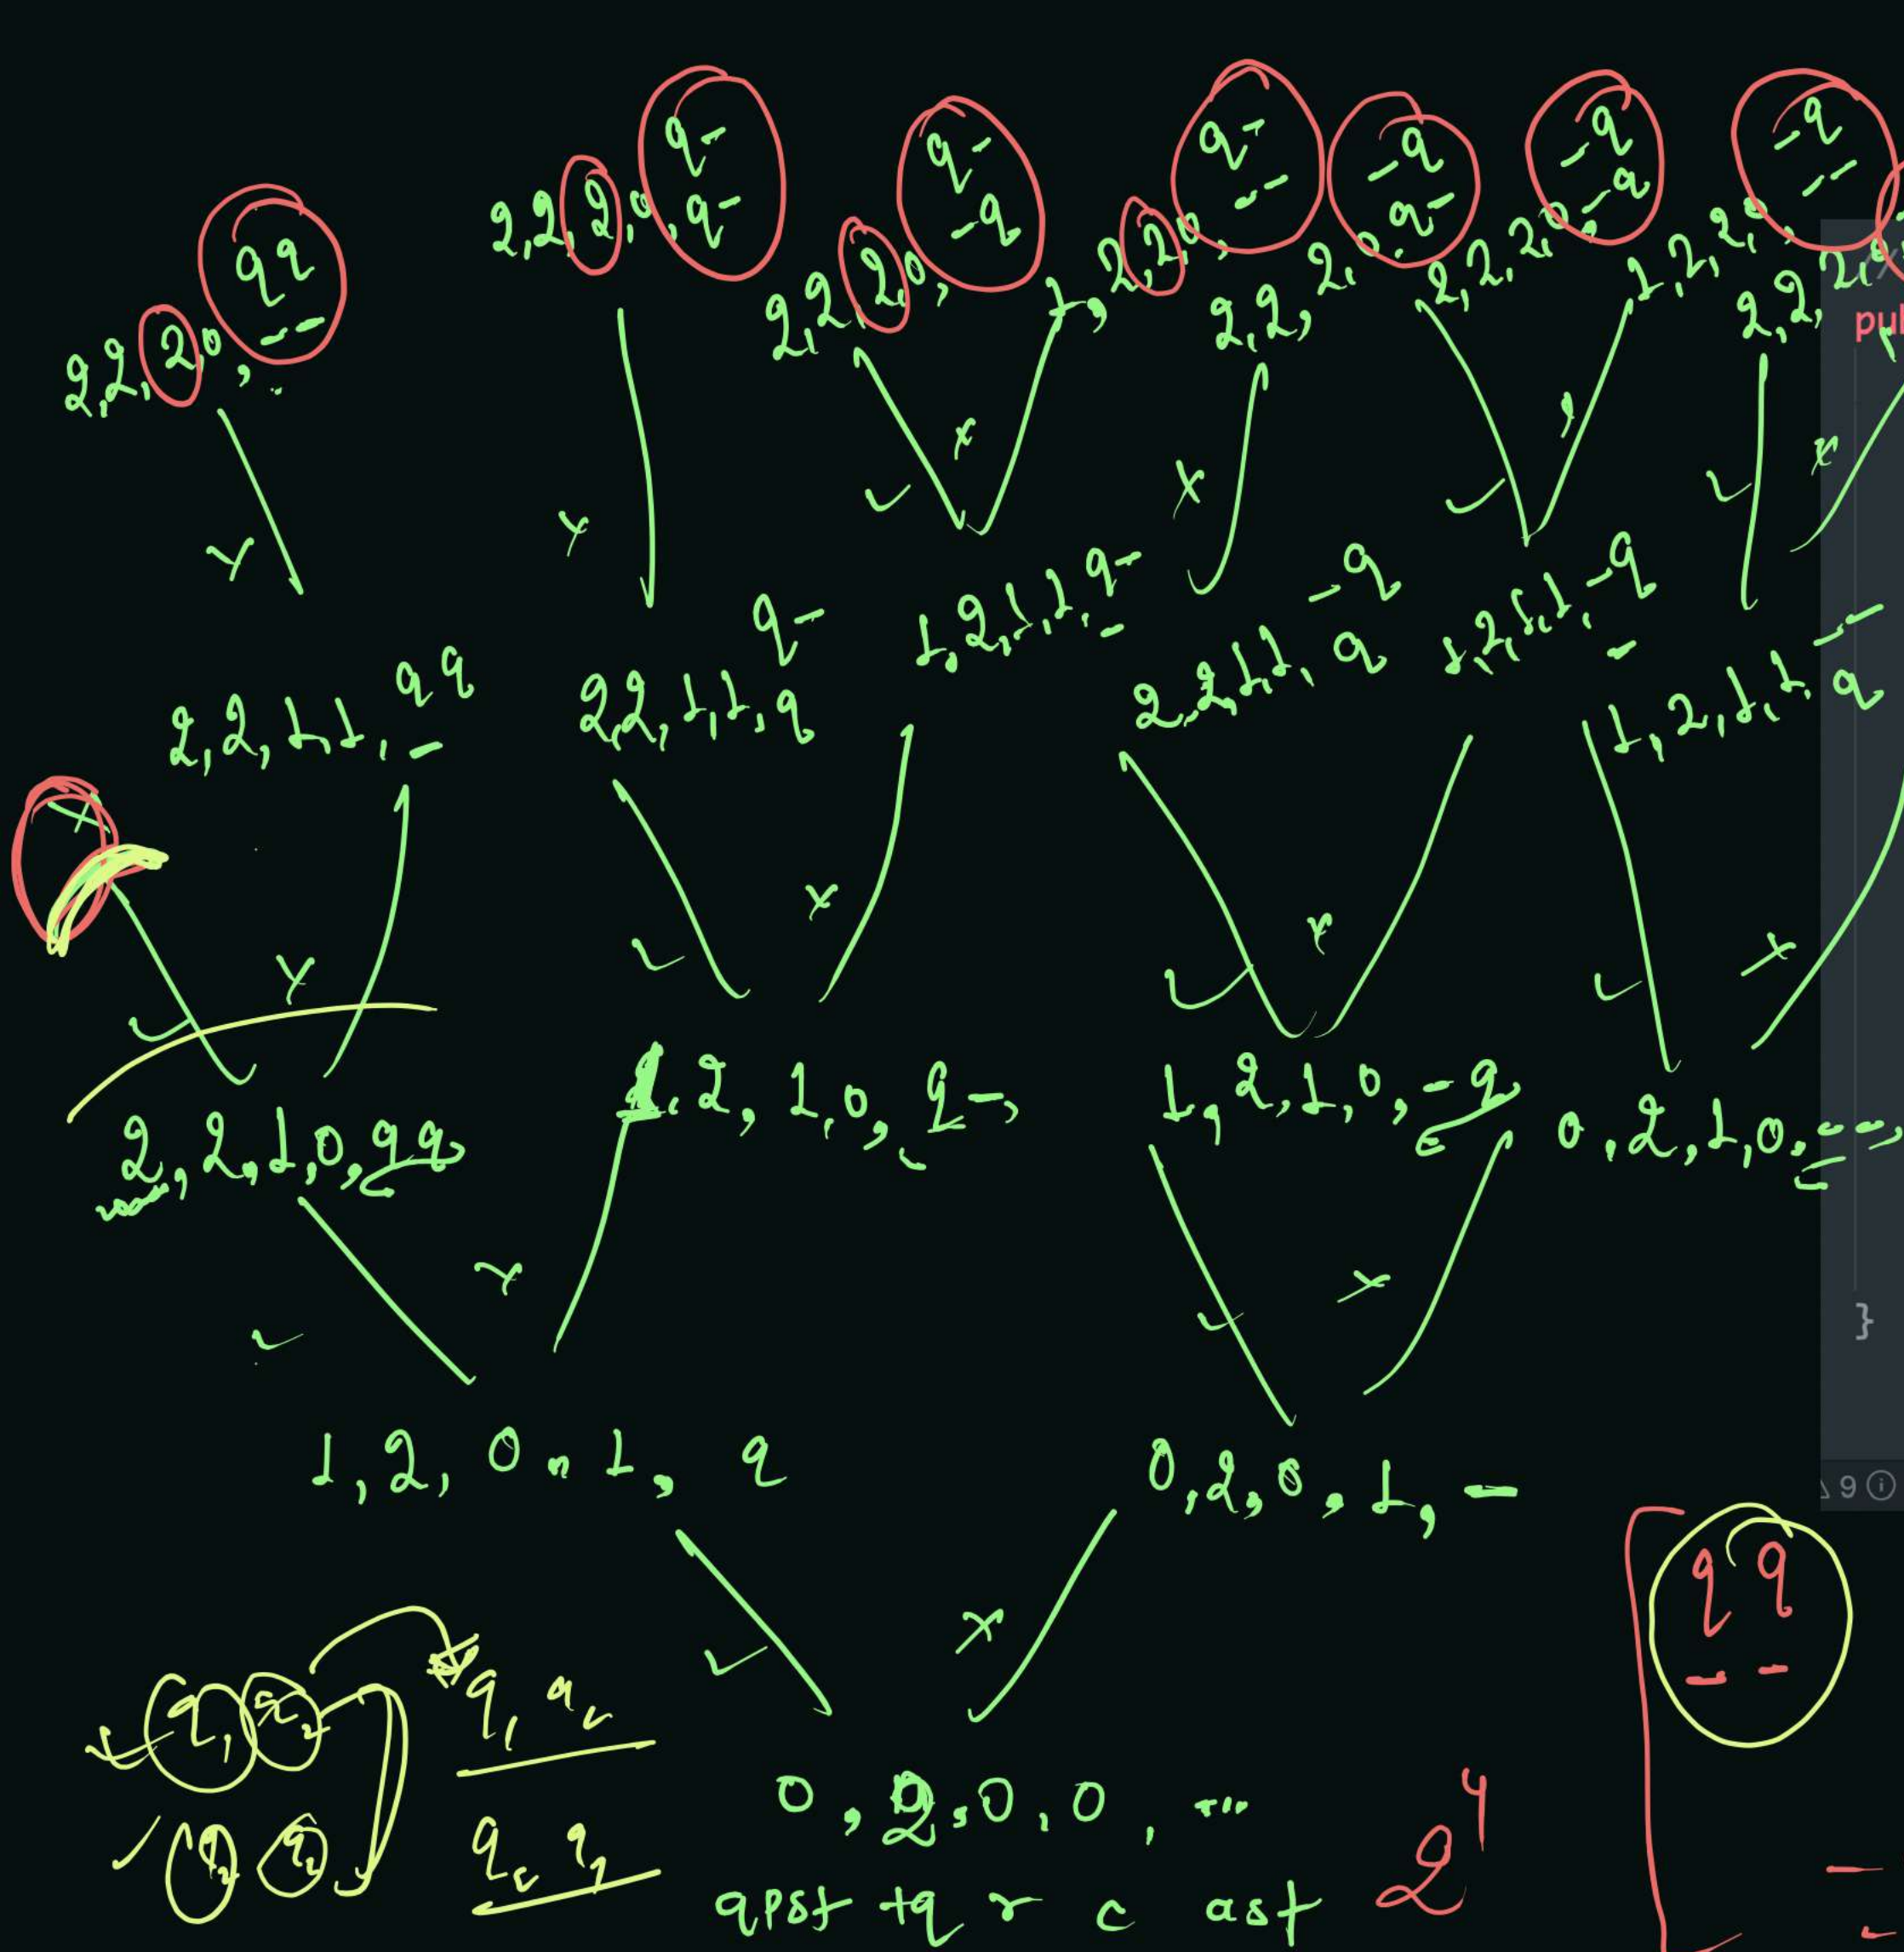 q q
- -
2,2,2,0,..
q -
q -
2,2,2,0,
q -
- q
2,2,2,0,
q -
- -
1,2,2,0,
- q
q -
2,2,2,0,
- q
- q
2,2,2,0,
- q
- -
1,2,2,0,
2,2,2,0,
pul
2,2,1,1, q q
-
2,2,1,1, q -
q
1,2,1,1, q -
-
2,2,1,1, - q
q
1,2,1,1, - q
-
1,2,1,1, - -
q
2,2,1,0,qq,
1,2,1,0,q-,
1,2,1,0,-q,
0,2,1,0,--,
}
1,2,0,1, q
0,2,0,1,-
9
q q
- -
q1 q2
q2 q1
0,2,0,0,...
qpsf tq r c asf
2^4